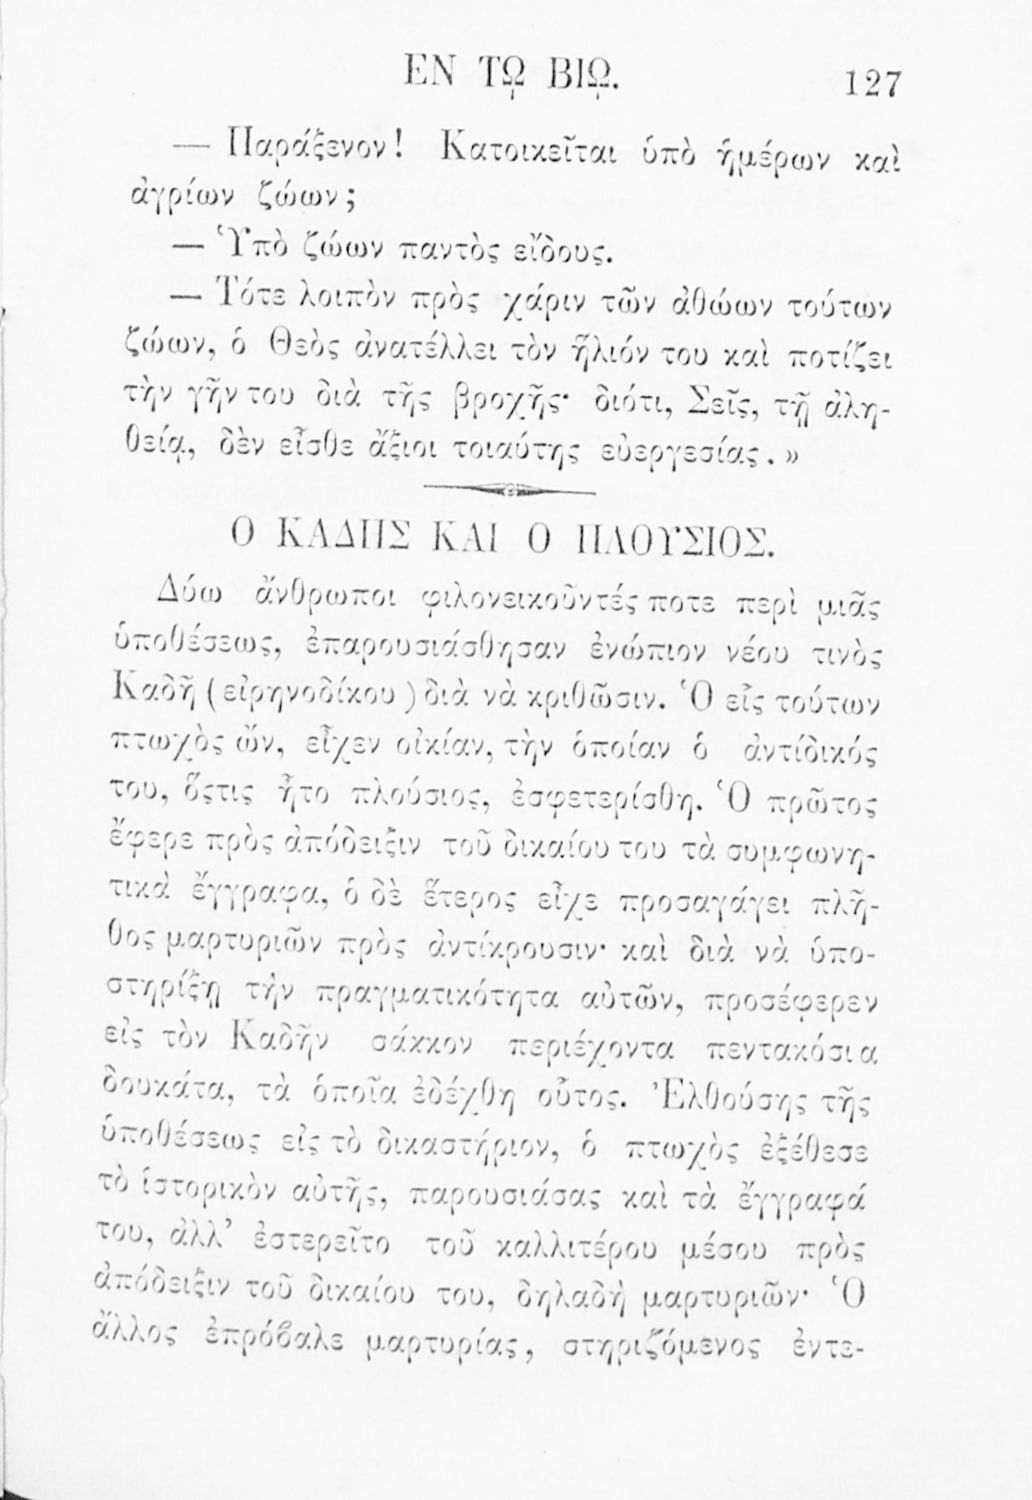 ΕΝ Τῼ ΒΙῼ. 127
— Παράξενον! Κατοικεῖται ὑπὸ ἡμέρων καὶ
ἀγρίων ζώων;
— Ὑπὸ ζώων παντὸς εἴδους.
— Τότε λοιπὸν πρὸς χάριν τῶν ἀθώων τούτων
ζώων, ὁ Θεὸς ἀνατέλλει τὸν ἥλιόν του καὶ ποτίζει
τὴν γῆν του διὰ τῆς βροχῆς· διότι, Σεῖς, τῇ ἀλη-
θείᾳ, δὲν εἶσθε ἄξιοι τοιαύτης εὐεργεσίας. »
Ο ΚΑΔΗΣ ΚΑΙ Ο ΠΛΟΥΣΙΟΣ.
Δύω ἄνθρωποι φιλονεικοῦντές ποτε περὶ μιᾶς
ὑποθέσεως, ἐπαρουσιάσθησαν ἐνώπιον νέου τινὸς
Καδῆ (εἰρηνοδίκου) διὰ νὰ κριθῶσιν. Ὁ εἷς τούτων
πτωχὸς ὤν, εἶχεν οἰκίαν, τὴν ὁποίαν ὁ ἀντίδικός
του, ὅςτις ἦτο πλούσιος, ἐσφετερίσθη. Ὁ πρῶτος
ἔφερε πρὸς ἀπόδειξιν τοῦ δικαίου του τὰ συμφωνη-
τικὰ ἔγγραφα, ὁ δὲ ἕτερος εἶχε προσαγάγει πλῆ-
θος μαρτυριῶν πρὸς ἀντίκρουσιν· καὶ διὰ νὰ ὑπο-
στηρίξῃ τὴν πραγματικότητα αὐτῶν, προσέφερεν
εἰς τὸν Καδῆν σάκκον περιέχοντα πεντακόσια
δουκάτα, τὰ ὁποῖα ἐδέχθη οὗτος. Ἐλθούσης τῆς
ὑποθέσεως εἰς τὸ δικαστήριον, ὁ πτωχὸς ἐξέθεσε
τὸ ἱστορικὸν αὐτῆς, παρουσιάσας καὶ τὰ ἔγγραφά
του, ἀλλ’ ἐστερεῖτο τοῦ καλλιτέρου μέσου πρὸς
ἀπόδειξιν τοῦ δικαίου του, δηλαδὴ μαρτυριῶν· Ὁ
ἄλλος ἐπρόβαλε μαρτυρίας, στηριζόμενος ἐντε-